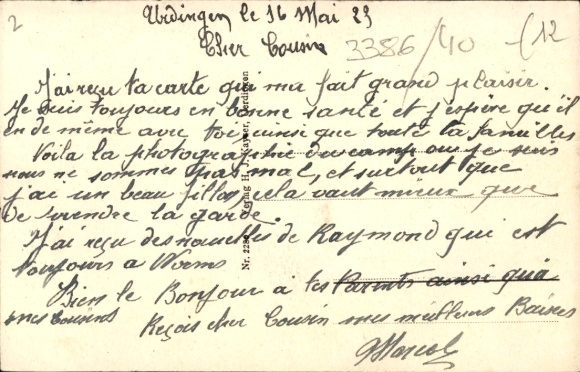 2
Urdingen le 16 Mai 23
Cher Cousin
3386/40
(12
J'ai reçu ta carte qui ma fait grand plaisir.
Je suis toujours en bonne santé et j'espère qu'il
en de même avec toi ainsi que toute ta familles
Voila la photographie du camp ou je suis
nous ne sommes pas mal, et surtout que
j'ai un beau filles, cela vaut mieux que
de prendre la garde.
J'ai reçu des nouvelles de Raymond qui est
toujours a Worms
Bien le Bonjour a tes Parents ainsi qu'a
mes cousins
Reçois cher Cousin mes meilleurs Baises
Marcel
Nr. 228 Verlag H. Kayser, Uerdingen